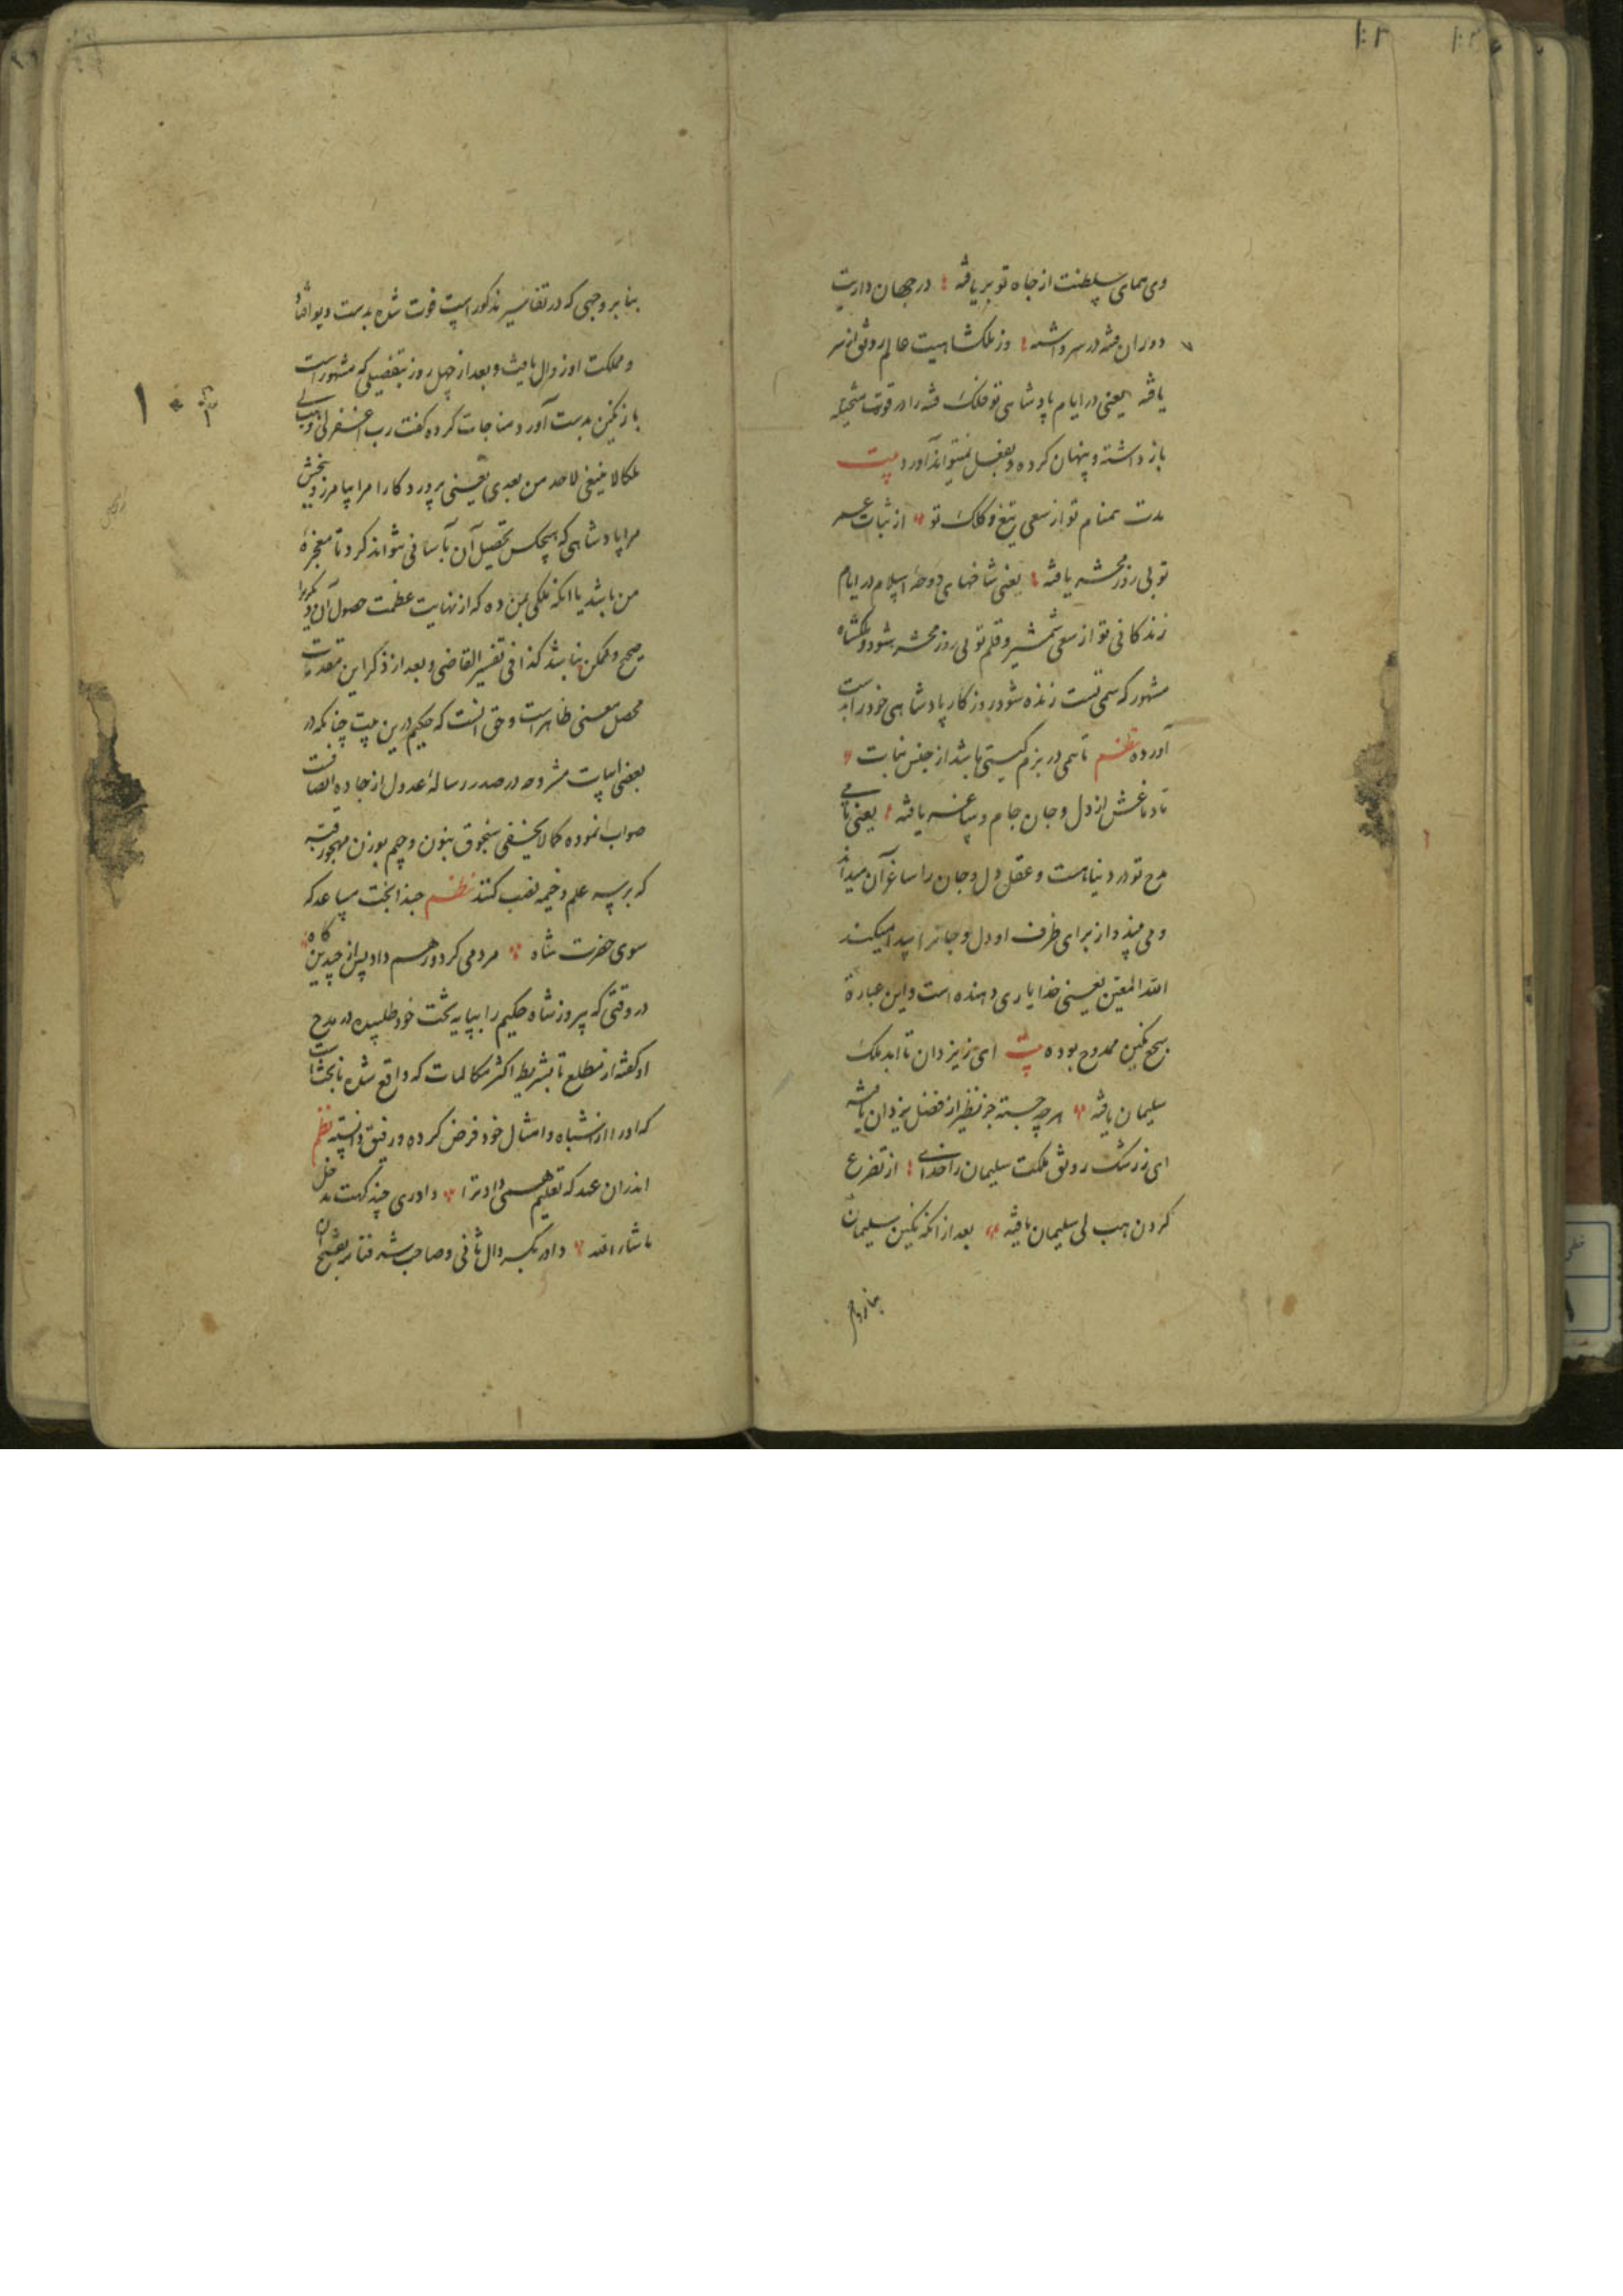 وی همای سلطنت از جاه تو بر یافته در جهان داریت
دوران فتنه در سر داشته وز ملکشاهیت عالم رونق از سر
یافته یعنی در ایام پادشاهی تو فلک فتنه را در قوت متخیله
باز داشته و پنهان کرده و بفعل نمیتواند آورد بیت
مدت همنام تو از سعی تیغ و کلک تو از ثبات عمر
تو بی روز محشر یافته یعنی شاخهای دوحهٔ اسلام در ایام
زندکانی تو از سعی شمشیر و قلم تو بی روز محشر شود و ملکشاه
مشهور که سمی تست زنده شود روزکار پادشاهی خود را بدست
آورده نظم تا همی در بزم کیتی باشد از جنس نبات
تا دماغش از دل و جان جام و ساغر یافته یعنی تا می
مدح تو در دنیا هست و عقل دل و جان را ساغر آن میداند
و می پندارد از برای ظرف او دل و جانرا پیدا میکند
الله المعین یعنی خدا یاری دهنده است و این عبارة
سجع نکین ممدوح بوده بیت ای ز یزدان تا ابد ملک
سلیمان یافته هر چه جسته جز نظیر از فضل یزدان یافته
ای ز رشک رونق ملکت سلیمان را خدای از تضرع
کردن هب لی سلیمان یافته بعد از انکه نکین سلیمان
بنا بر وجهی که در تفاسیر مذکور است فوت شده بدست دیو افتاد
و مملکت او زوال یافت و بعد از چهل روز بتفصیلی که مشهور است
باز نکین بدست آورد مناجات کرده کفت رب اغفر لی و هب لی
ملکا لا ینبغی لاحد من بعدی یعنی پروردکارا مرا بیامرز و ببخش
مرا پادشاهی که هیچکس تحصیل آن بآسانی نتواند کرد تا معجزهٔ
من باشد یا آنکه ملکی بمن ده که از نهایت عظمت حصول آن دیکریرا
صحیح و ممکن نباشد کذا فی تفسیر القاضی و بعد از ذکر این مقدمات
محصل معنی ظاهر است و حق انست که حکیم درین بیت چنانکه در
بعضی ابیات مشروحه در صدر رساله عدول از جاده انصاف
صواب نموده کما لا یخفی سنجوق بنون و جیم بوزن مهجور قبه
که بر سر علم و خیمه نصب کنند نظم حبذا بخت مساعد که
سوی حضرت شاه مردمی کرد و رهم داد پس از چندین کاه
در وقتی که پیروز شاه حکیم را بپایه تخت خود طلبیده در مدح
او کفته از مطلع تا بشریطه اکثر مکالمات که واقع شده با بخت است
که او را از اشباه و امثال خود فرض کرده و رفیق دانسته نظم
اندران عهد که تعلیم همی داد ترا داوری چند کهت مدخل
ما شاء الله داور بکسر دال ثانی و صاحب شرفنامه بفتح آن